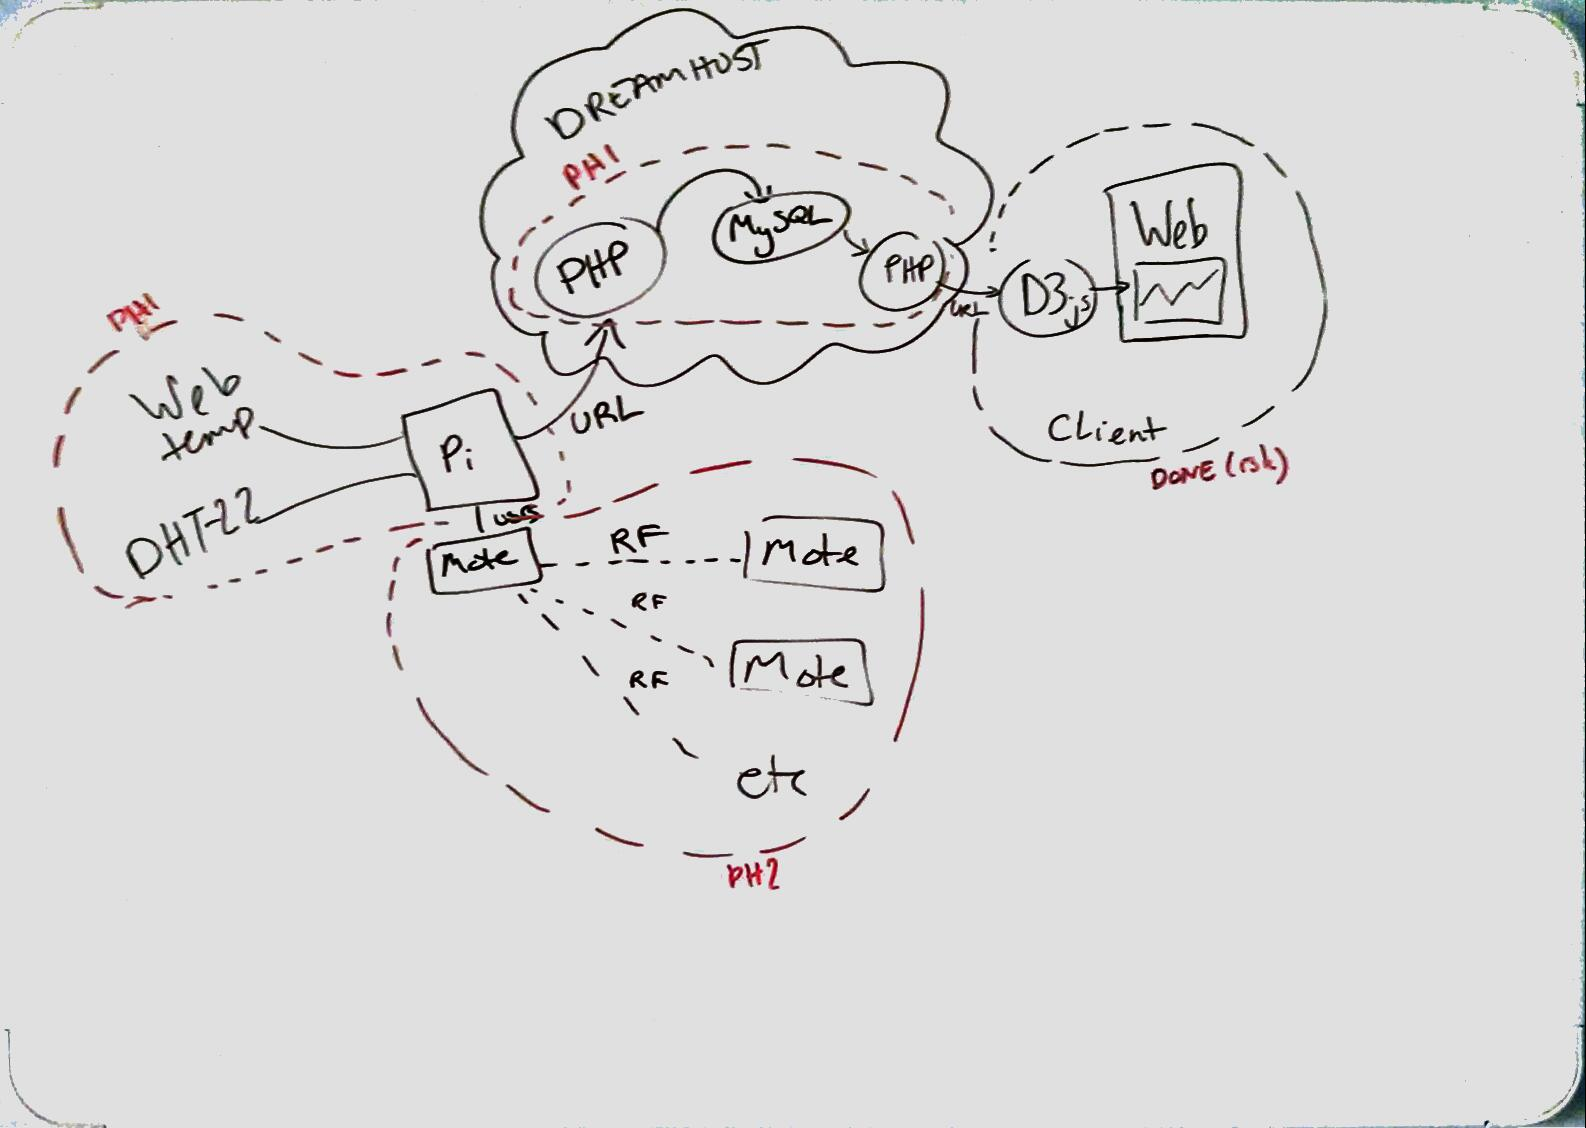 DREAMHOST
PH1
PHP
MySQL
PHP
URL
D3.js
Web
Client
DONE (ish)
PH1
Web
temp
DHT-22
Pi
URL
Mote
RF
Mote
RF
Mote
RF
etc
PH2